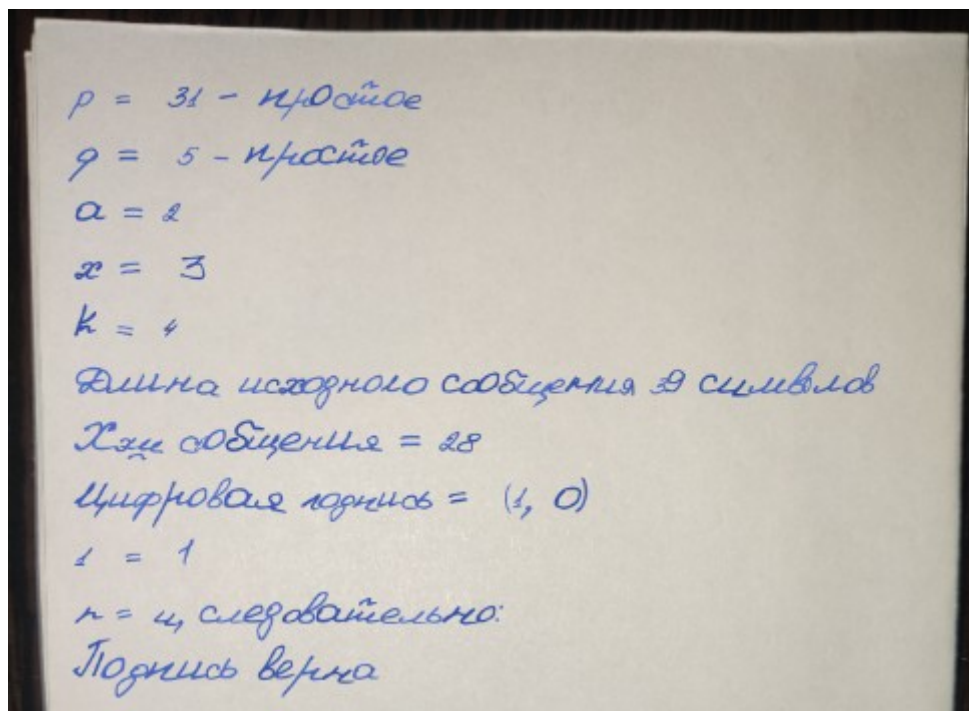 p = 31 - простое
q = 5 - простое
a = 2
x = 3
k = 4
Длина исходного сообщения 39 символов
Хэш сообщения = 28
Цифровая подпись = (1, 0)
1 = 1
r = u, следовательно:
Подпись верна